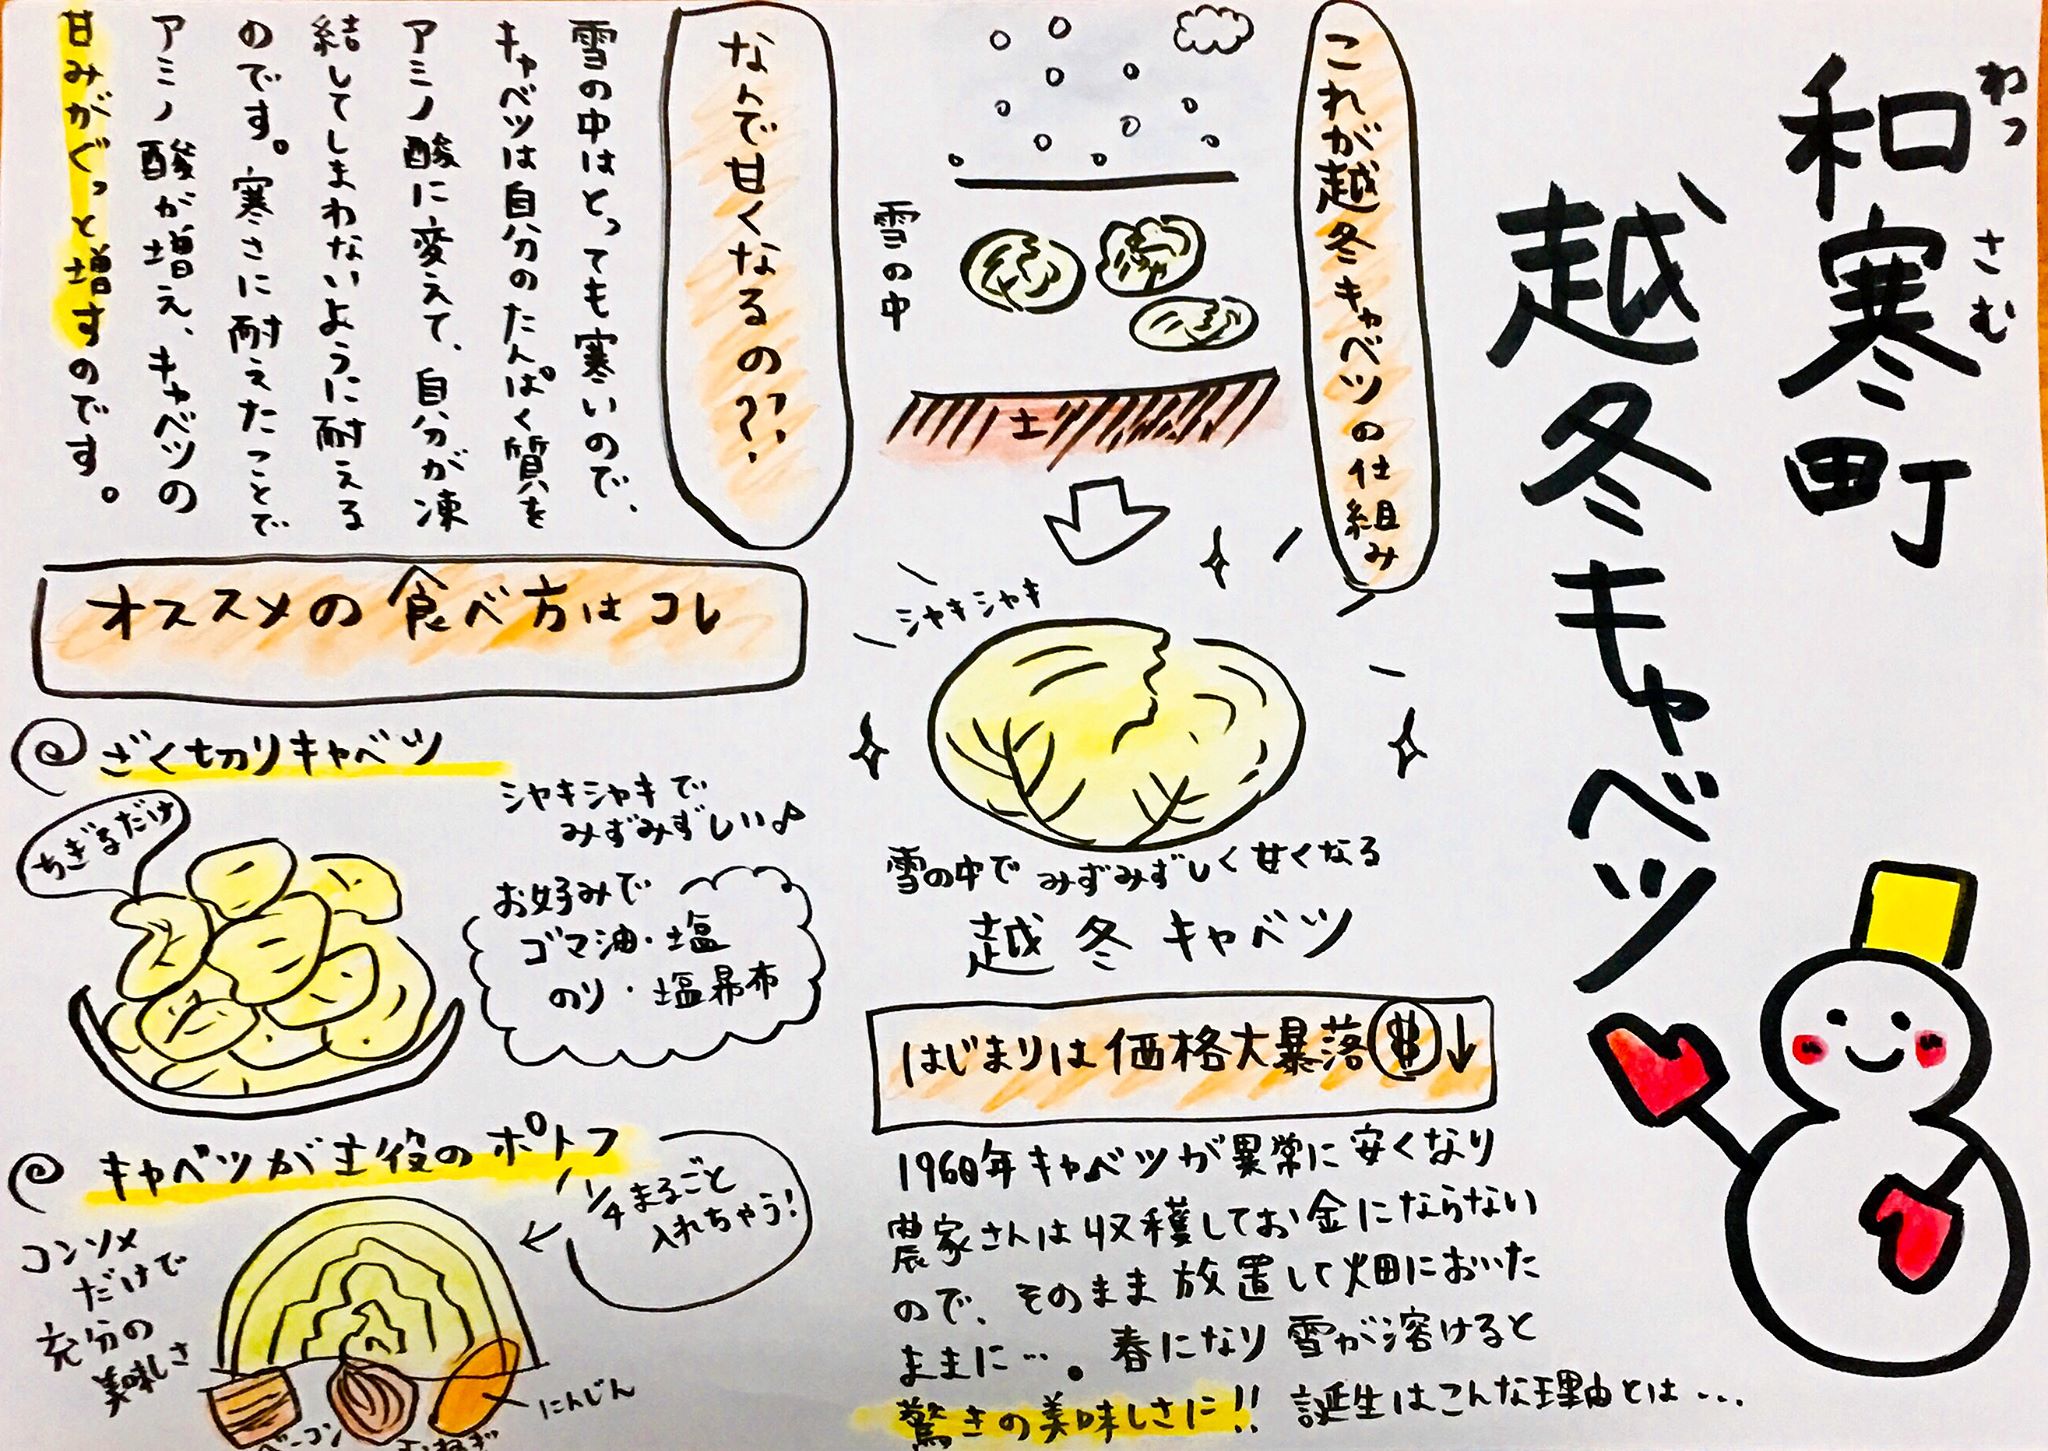 わっ さむ
和寒町
越冬キャベツ
これが越冬キャベツの仕組み
雪の中
土
シャキシャキ
雪の中でみずみずしく甘くなる
越冬キャベツ
はじまりは価格大暴落$↓
1968年キャベツが異常に安くなり
農家さんは収穫してお金にならない
ので、そのまま放置して畑においた
ままに…。春になり雪が溶けると
驚きの美味しさに!! 誕生はこんな理由とは…
なんで甘くなるの??
雪の中はとっても寒いので、
キャベツは自分のたんぱく質を
アミノ酸に変えて、自分が凍
結してしまわないように耐える
のです。寒さに耐えたことで
アミノ酸が増え、キャベツの
甘みがぐっと増すのです。
オススメの食べ方はコレ
ざく切りキャベツ
ちぎるだけ
シャキシャキで
みずみずしい♪
お好みで
ゴマ油・塩
のり・塩昆布
キャベツが主役のポトフ
1/4まるごと
入れちゃう!
コンソメ
だけで
充分の
美味しさ
ベーコン
たまねぎ
にんじん